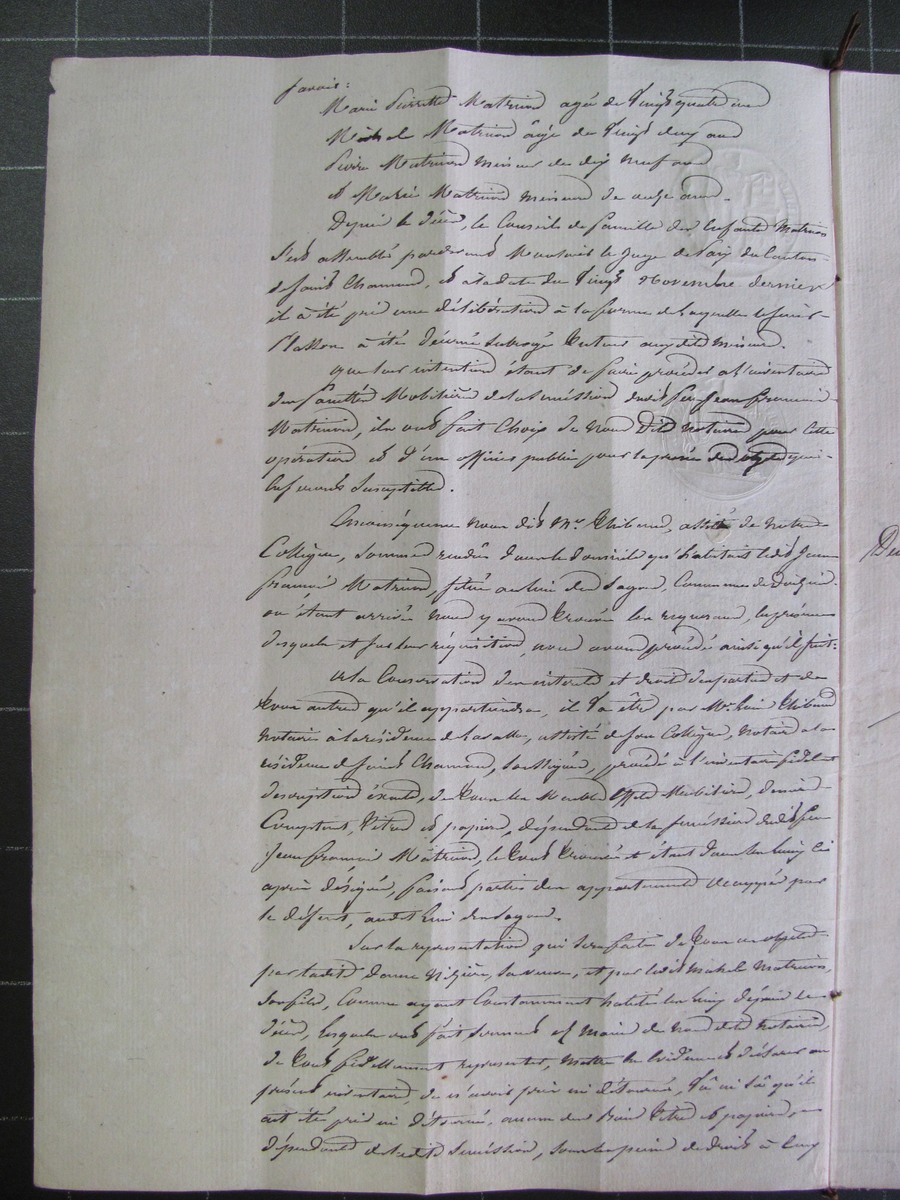 savoir:
Marie Pierrette Matricon agée de Vingt quatre ans
Michel Matricon âgé de Vingt deux ans
Pierre Matricon mineur de dix neuf ans
et Marie Matricon mineure de onze ans.
Depuis le décès, le Conseil de famille des Enfants Matricon
s'est assemblé pardevant Monsieur le Juge de Paix du Canton
de Saint Chamond, et à la date du Vingt Novembre dernier
il a été pris une délibération à la forme de laquelle le sieur
a été décerné subrogé tuteur auxdits mineurs.
que leur intention étant de faire procéder a l'inventaire
des facultés Mobilières de la succession dudit feu Jean François
Matricon, ils ont fait Choix de nous dit Notaire pour cette
opération et d'un officier public pour la prisée des objets qui
en seront susceptibles.
En conséquence nous dit Mr. Thibaud, assisté de notre
Collègue, sommes rendus dans le domicile qu'habitait ledit Jean
François Matricon, situé au lieu de Communes de
où étant arrivés nous y avons trouvé les requérans, en présence
desquels et sur leur réquisition, nous avons procédé ainsi qu'il suit:
A la Conservation des intérêts et droits des parties et de
tous autres qu'il appartiendra, il Va être par Me. Thibaud
notaire à la résidence de Lavalla, assisté de son Collègue, notaire à la
résidence de Saint Chamond, soussignés, procédé à l'inventaire fidèle et
description exacte, de tous les Meubles Effets Mobiliers, deniers
Comptant, Titres et papiers, dépendant de la succession dudit feu
Jean François Matricon, le tout trouvé et étant dans les lieux ci
après désignés, faisant partie des appartements occupés par
le défunt, audit lieu
Sur la représentation qui sera faite de tous ces objets
par ladite dame sa veuve, et par ledit Michel Matricon,
son fils, Comme ayant Constamment habité les lieux depuis le
décès, lesquels ont fait serment ès mains de nous dit Notaire,
de tout fidellement représenter, mettre en évidence et déclarer au
présent inventaire, de n'avoir pris ni détourné, Vu ni su qu'il
ait été pris ni détourné, aucun des biens Titres et papiers,
dépendant de ladite Succession, sous les peines de droit à eux